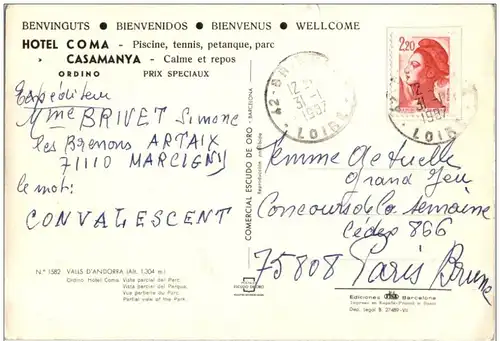 BENVINGUTS ● BIENVENIDOS ● BIENVENUS ● WELLCOME
HOTEL COMA - Piscine, tennis, petanque, parc
CASAMANYA - Calme et repos
ORDINO PRIX SPECIAUX
Expéditeur
Mme BRIVET Simone
les Brenons ARTAIX
71110 MARCIGNY
le mot:
CONVALESCENT
N.º 1582 VALLS D'ANDORRA (Alt. 1.304 m.)
Ordino. Hotel Coma. Vista parcial del Parc.
Vista parcial del Parque.
Vue partielle du Parc.
Partial view of the Park.
COMERCIAL ESCUDO DE ORO - BARCELONA
Reproducción prohibida
ESCUDO DE ORO
42-BR
12-
31-1
1987
LOIRE
2,20
12
31-1
1987
LOIRE
Femme Actuelle
Grand Jeu
Concours de la semaine
Cédex 866
75808 Paris Brune
Ediciones Barcelona
Impreso en España-Printed in Spain
Dep. Legal B. 27489-VII